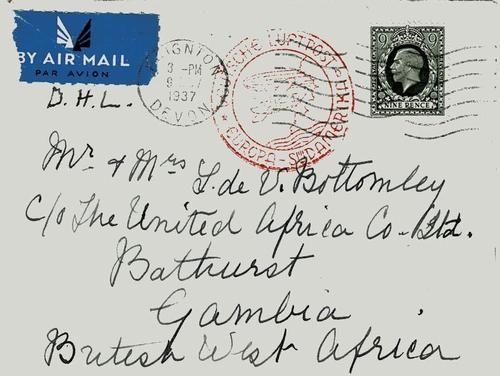 BY AIR MAIL
PAR AVION
D.H.L.
IGNTON
3 - PM
1937
DEVON
SCHE LUFTPOST
EUROPA - SÜDAMERIKA
9 9
NINE PENCE
Mr & Mrs L. de V. Bottomley
c/o The United Africa Co. Ltd.
Bathurst
Gambia
British West Africa